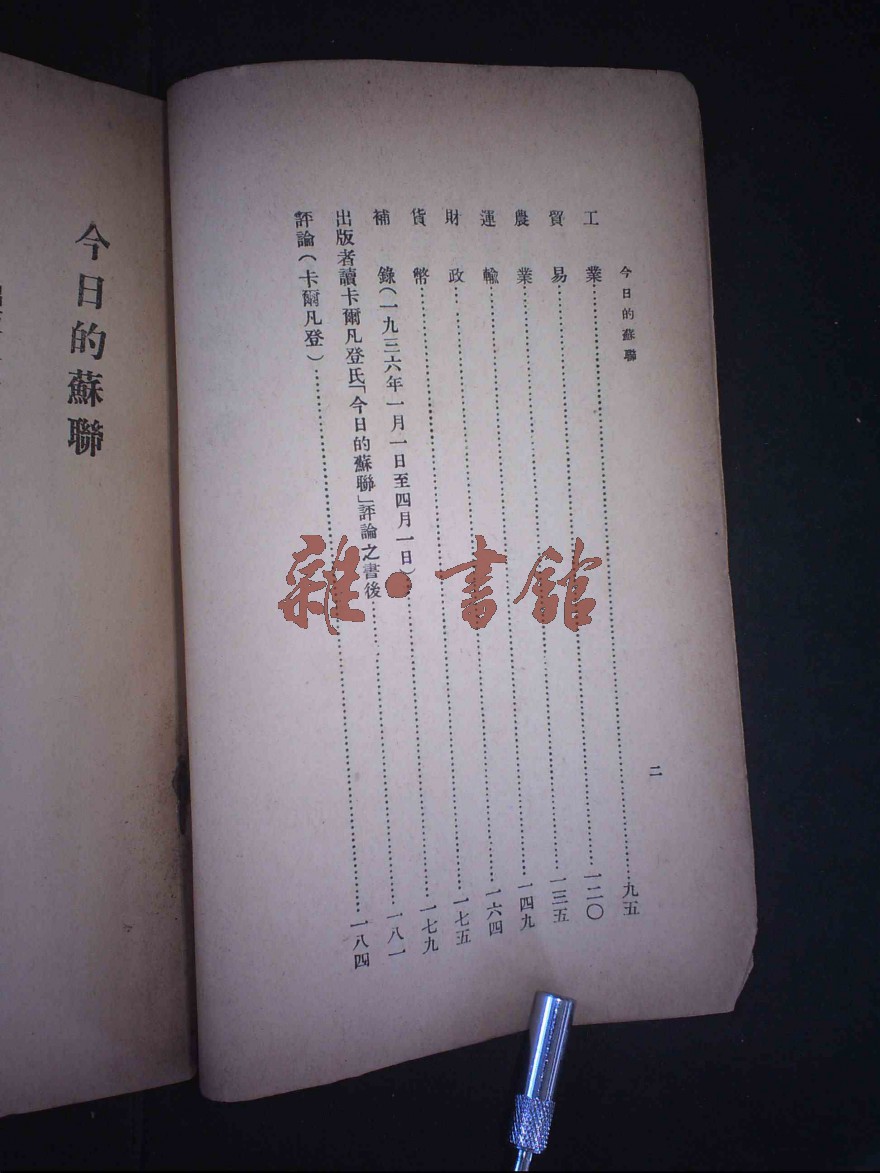 今日的蘇聯
二
工業……九五
貿易……一二〇
農業……一三五
運輸……一四九
財政……一六四
貨幣……一七五
補錄(一九三六年一月一日至四月一日)……一七九
出版者讀卡爾凡登氏「今日的蘇聯」評論之書後……一八一
評論(卡爾凡登)……一八四
今日的蘇聯
雜·書館